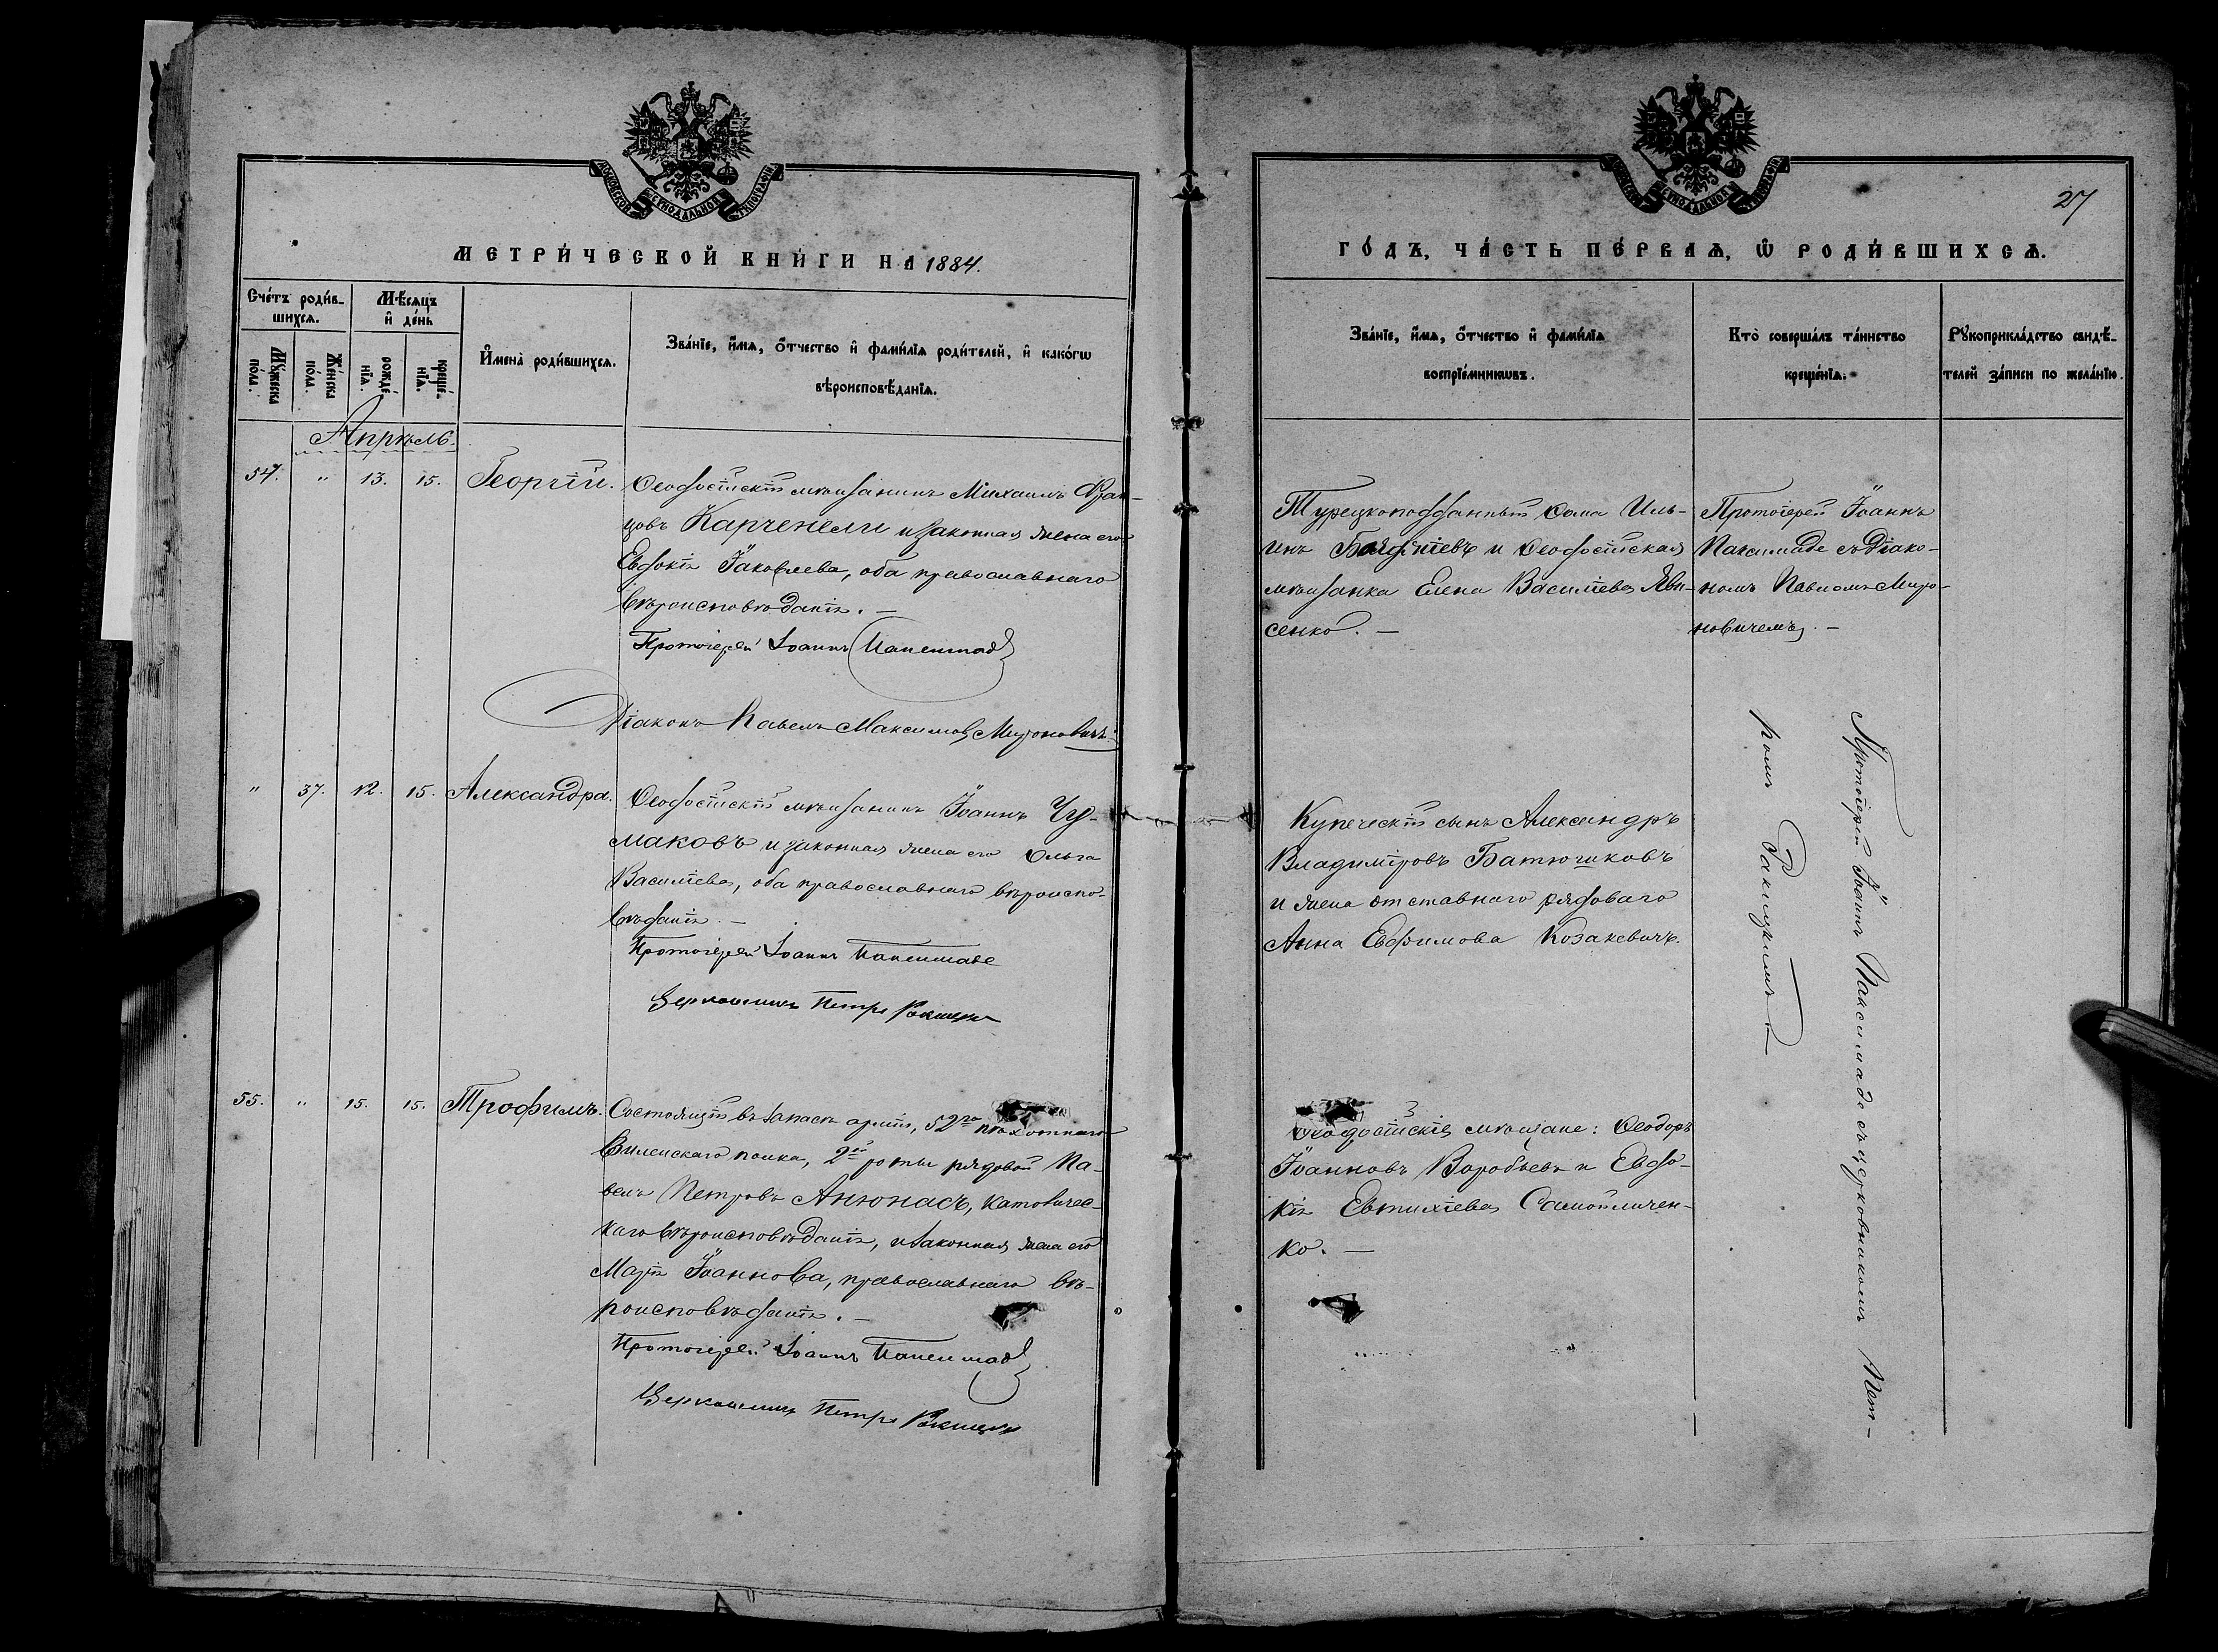 МОСКОВСКОЙ СѴНОДАЛЬНОЙ ТИПОГРАФІИ
МЕТРИ́ЧЕСКОЙ КНИ́ГИ НА 1884.
Сче́тъ роди́в-
шихсѧ.
Мѣ́сѧцъ
и҆ де́нь
Мꙋ́жеска
по́ла.
Же́нска
по́ла.
рожде́
нїѧ.
креще́-
нїѧ.
И҆мена̀ роди́вшихсѧ.
Зва́нїе, и҆́мѧ, ѻ҆́тчество и҆ фами́лїѧ роди́телей, и҆ како́гѡ
вѣроисповѣ́данїѧ.
Апрѣль.
54. " 13. 15. Георгій.
Ѳеодосійскій мѣщанинъ Михаилъ Фран-
цовъ Карченели и законная жена его
Евдокія Іаковлева, оба православнаго
вѣроисповѣданія. —
Протоіерей Іоаннъ
Діаконъ Павелъ Максимов Мироновичъ
" 37. 12. 15. Александра.
Ѳеодосійскій мѣщанинъ Іоаннъ Чу-
маковъ и законная жена его Ольга
Василіева, оба православнаго вѣроиспо-
вѣданія. —
Протоіерей Іоаннъ
Церковникъ Петръ Ракицкій
55. " 15. 15. Трофимъ.
Состоящій въ запасѣ арміи, 52го пѣхотнаго
Виленскаго полка, 2й роты рядовой Па-
велъ Петровъ Анюнасъ, католичес-
каго вѣроисповѣданія, и законная жена его
Марія Іоаннова, православнаго вѣ-
роисповѣданія. —
Протоіерей Іоаннъ
Церковникъ Петръ Ракицкій
МОСКОВСКОЙ СѴНОДАЛЬНОЙ ТИПОГРАФІИ
27
ГО́ДЪ, ЧА́СТЬ ПЕ́РВАѦ, Ѡ҆ РОДИ́ВШИХСѦ.
Зва́нїе, и҆́мѧ, ѻ҆́тчество и҆ фами́лїѧ
воспрїе́мникѡвъ.
Кто̀ соверша́лъ та́инство
креще́нїѧ.
Рꙋкоприкла́дство свидѣ́-
телей за́писи по жела́нїю.
Турецкоподданный Ѳома Иль-
инъ и Ѳеодосійская
мѣщанка Елена Василіева Яви-
сенко. —
Протоіерей Іоаннъ
Паксимаде съ Діако-
номъ Павломъ Миро-
новичемъ. —
Купеческій сынъ Александръ
Владиміровъ Батючиковъ
и жена отставнаго рядоваго
Анна Евфимова Козакевичъ.
Протоіерей Іоаннъ Паксимаде съ церковникомъ Пет-
ромъ Ракицкимъ —
Ѳеодосійскіе мѣщане: Ѳеодоръ
Іоанновъ Воробьевъ и Евдо-
кія Евтихіева Самойличен-
ко. —